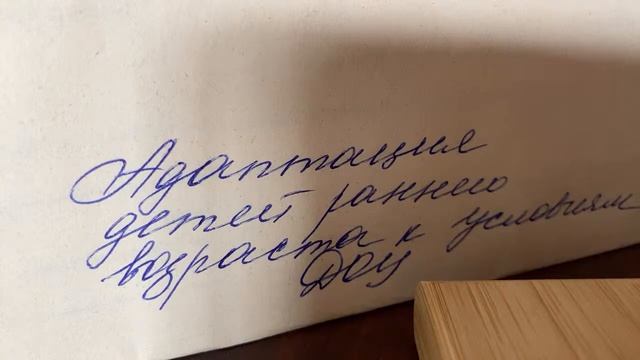 Адаптация
детей раннего
возраста к условиям
ДОУ